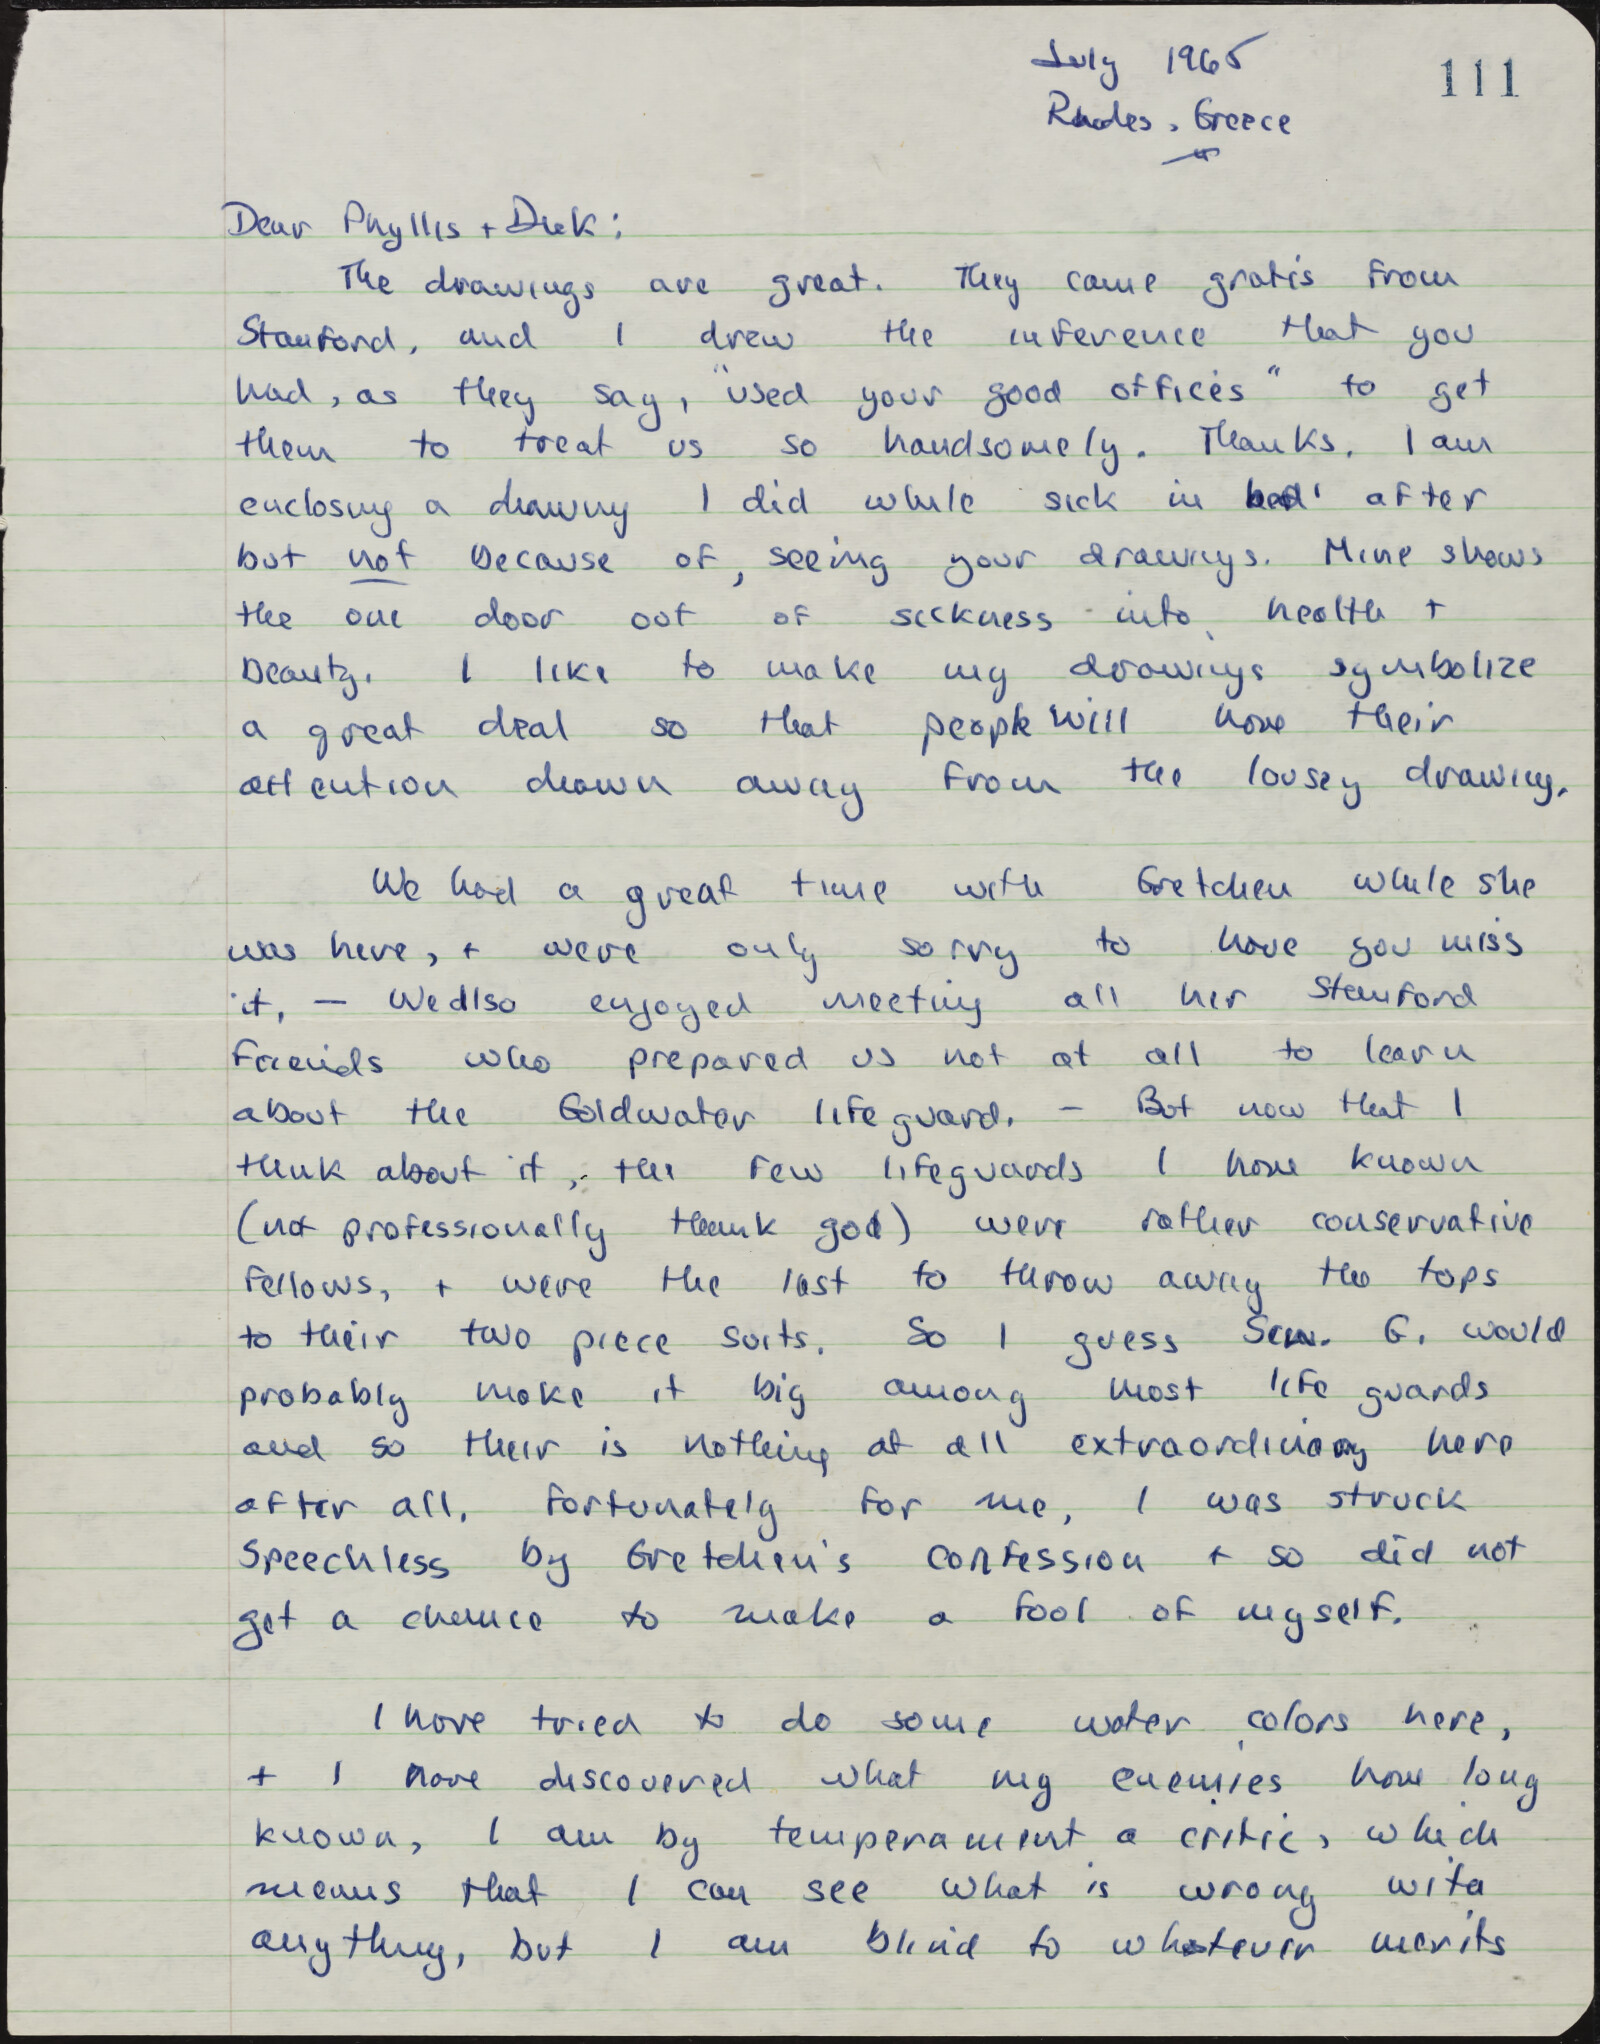 July 1965
111
Rhodes, Greece
Dear Phyllis + Dick:
The drawings are great. They came gratis from
Stanford, and I drew the inference that you
had, as they say, "used your good offices" to get
them to treat us so handsomely. Thanks. I am
enclosing a drawing I did while sick in bed after
but not because of, seeing your drawings. Mine shows
the one door out of sickness into health +
beauty. I like to make my drawings symbolize
a great deal so that people will have their
attention drawn away from the lousey drawing.
We had a great time with Gretchen while she
was here, + were only sorry to have you miss
it. — We also enjoyed meeting all her Stanford
friends who prepared us not at all to learn
about the Goldwater lifeguard. — But now that I
think about it, the few lifeguards I have known
(not professionally thank god) were rather conservative
fellows, + were the last to throw away the tops
to their two piece suits. So I guess Sen. G. would
probably make it big among most life guards
and so their is nothing at all extraordinary here
after all. Fortunately for me, I was struck
speechless by Gretchen's confession + so did not
get a chance to make a fool of myself.
I have tried to do some water colors here,
+ I have discovered what my enemies have long
known, I am by temperament a critic, which
means that I can see what is wrong with
anything, but I am blind to whatever merits